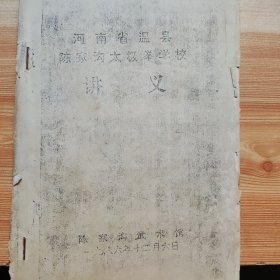 河南省温县
陈家沟太极拳学校
讲义
陈家沟武术馆
一九八六年十二月六日